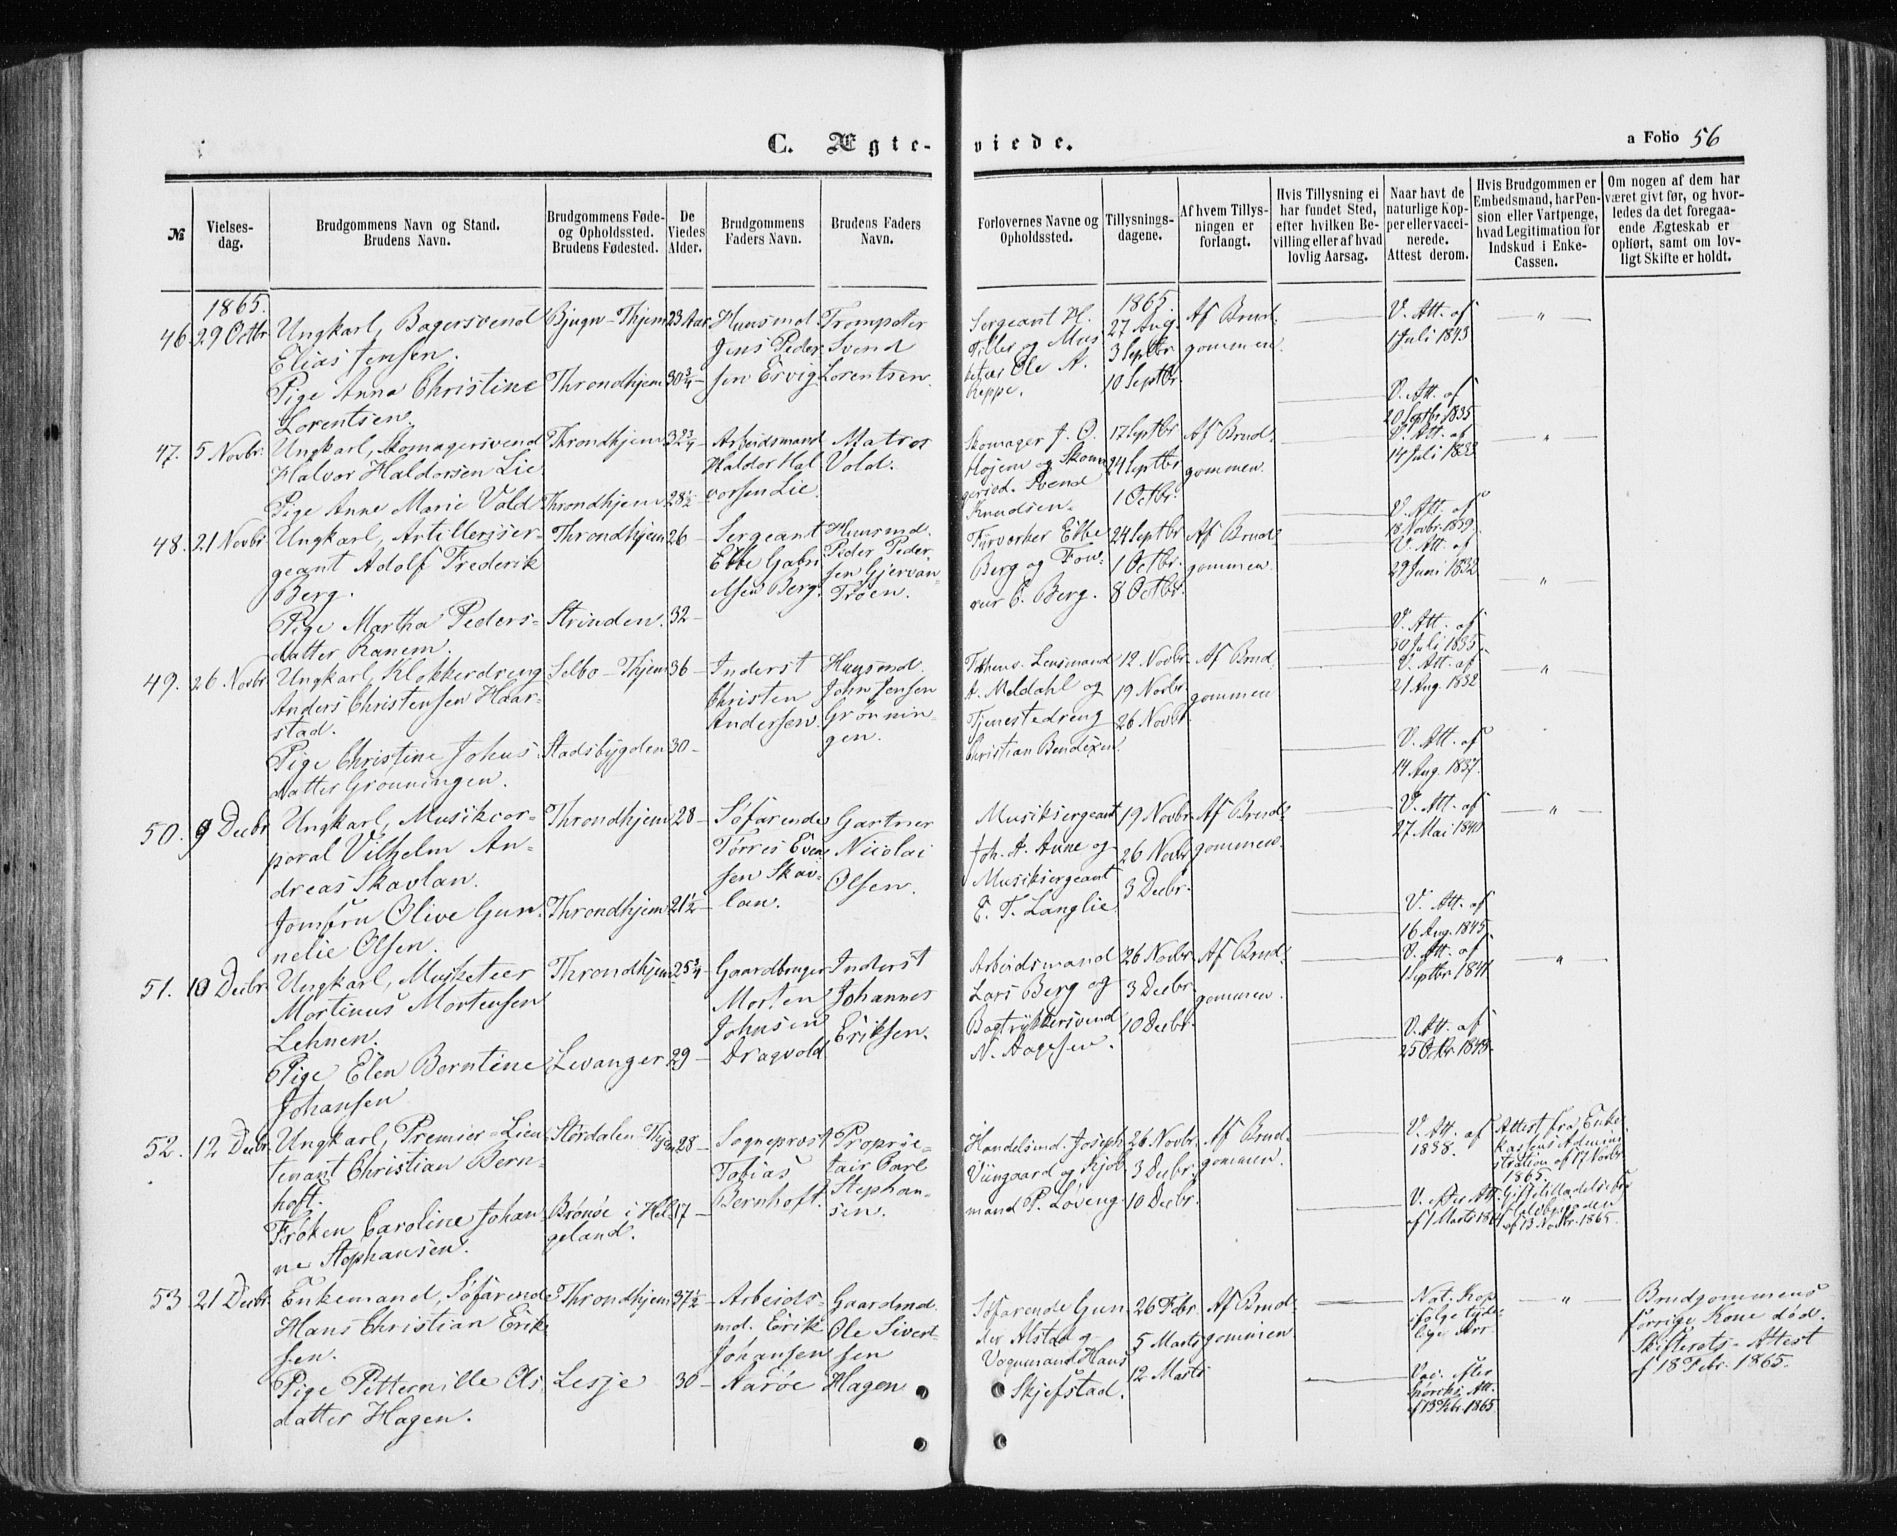 C. Ægte-
viede.
a Folio 56
№
Vielses-
dag.
Brudgommens Navn og Stand.
Brudens Navn.
Brudgommens Føde-
og Opholdssted.
Brudens Fødested.
De
Viedes
Alder.
Brudgommens
Faders Navn.
Brudens Faders
Navn.
Forlovernes Navne og
Opholdssted.
Tillysnings-
dagene.
Af hvem Tillys-
ningen er
forlangt.
Hvis Tillysning ei
har fundet Sted,
efter hvilken Be-
villing eller af hvad
lovlig Aarsag.
Naar havt de
naturlige Kop-
per eller vacci-
nerede.
Attest derom.
Hvis Brudgommen er
Embedsmand, har Pen-
sion eller Vartpenge,
hvad Legitimation for
Indskud i Enke-
Cassen.
Om nogen af dem har
været givt før, og hvor-
ledes da det foregaa-
ende Ægteskab er
ophørt, samt om lov-
ligt Skifte er holdt.
1865.
46. 29 Octbr.
Ungkarl, Bagersvend
Elias Jensen.
Pige Anna Christine
Lorentsen.
Bjugn - Thjem
Throndhjem
23 Aar
30¾ -
Huusmd.
Jens Peder-
sen Ervig
Trompeter
Svend
Lorentsen.
Sergeant H.
Tiller og Mus-
keteer Ole A.
Reppe.
1865.
27 Aug.
3 Septbr.
10 Septbr.
Af Brud-
gommen.
V. Att. af
1 Juli 1843
V. Att. af
20 Septbr. 1835
47. 5 Novbr.
Ungkarl, Skomagersvend
Halvor Haldorsen Lie
Pige Anne Marie Vold
Throndhjem
Throndhjem
32¾ -
28½
Arbeidsmand
Haldor Hal-
vorsen Lie.
Matros
Vold.
Skomager J. O.
Højem og Skoma-
gersvd. Svend
Knudsen.
17 Septbr.
24 Septbr.
1 Octbr.
Af Brud-
gommen.
V. Att. af
14 Juli 1833
V. Att. af
18 Novbr. 1839.
48. 21 Novbr.
Ungkarl, Artilleriser-
geant Adolf Frederik
Berg.
Pige Martha Peders-
datter Ranem.
Throndhjem
Strinden.
26 -
32 -
Sergeant
Ebbe Gabri-
elsen Berg.
Huusmd.
Peder Peder-
sen Gjervan-
Trøen.
Fyrvorker Ebbe
Berg og Four-
rer C. Berg.
24 Septbr.
1 Octbr.
8 Octbr.
Af Brud-
gommen.
V. Att. af
29 Juni 1832
V. Att. af
30 Juli 1835
49. 26 Novbr.
Ungkarl, Klokkerdreng
Anders Christensen Haar-
stad.
Pige Christine Johns-
datter Grønningen.
Selbo - Thjem
Stadsbygden
36 -
30 -
Inderst
Christen
Andersen.
Huusmd.
John Jensen
Grønnin-
gen.
Lensmand
A. Meldahl og
Tjenestedreng
Christian Bendixen
12 Novbr.
19 Novbr.
26 Novbr.
Af Brud-
gommen
V. Att. af
21 Aug. 1832
V. Att. af
14 Aug. 1837.
50. 9 Decbr.
Ungkarl, Musikcor-
poral Vilhelm An-
dreas Skavlan.
Jomfru Olive Gun-
nelie Olsen.
Throndhjem
Throndhjem
28 -
21½ -
Søfarende
Torres Even-
sen Skav-
lan.
Gartner
Nicolai
Olsen.
Musiksergeant
Joh. A. Aune og
Musiksergeant
E. T. Langlie.
19 Novbr.
26 Novbr.
3 Decbr.
Af Brud-
gommen.
V. Att. af
27 Mai 1840
V. Att. af
16 Aug. 1845.
51. 10 Decbr.
Ungkarl, Musketeer
Mortinus Mortensen
Lehnen.
Pige Elen Berntine
Johansen
Throndhjem
Levanger
25¾ -
29 -
Gaardbruger
Morten
Johnsen
Dragvold
Inderst
Johannes
Eriksen.
Arbeidsmand
Lars Berg og
Bogtrykkersvend
N. Aagesen.
26 Novbr.
3 Decbr.
10 Decbr.
Af Brud-
gommen.
V. Att. af
1 Septbr. 1841
V. Att. af
25 Octbr. 1843.
52. 12 Decbr.
Ungkarl, Premier-Lieu-
tenant Christian Bern-
hoft.
Frøken Caroline Johan-
ne Stephansen.
Størdalen
Brønøe i Hel-
geland.
28 -
17 -
Sogneprovst
Tobias
Bernhoft.
Proprie-
tair Carl
Stephan-
sen.
Handelsmd. Joseph
Viingaard og Kjøb-
mand P. Løveng
26 Novbr.
3 Decbr.
10 Decbr.
Af Brud-
gommen.
V. Att. af
1838.
V. efter Att.
af 7 Marts
Attest fra Enke-
kassens Admini-
stration af 17 Novbr.
1865.
Giftetilladelse
af 13 Novbr. 1865.
53 21 Decbr.
Enkemand, Søfarende
Hans Christian Erik-
sen.
Pige Petternille Ols-
datter Hagen.
Throndhjem
Lesje
37½ -
30 -
Arbeids-
md. Eerik
Johansen
Aarøe
Gaardmd.
Ole Sivert-
sen
Hagen
Søfarende Gun-
der Alstad og
Vognmand Hans
Skjefstad.
26 Febr.
5 Marts
12 Marts
Af Brud-
gommen
Nat. Kop.
ifølge tyde-
lige Arr
Vac. efter
Att.
af 13 Febr. 1865
Brudgommens
forrige Kone død.
Skifterets-Attest
af 18 Febr. 1865.